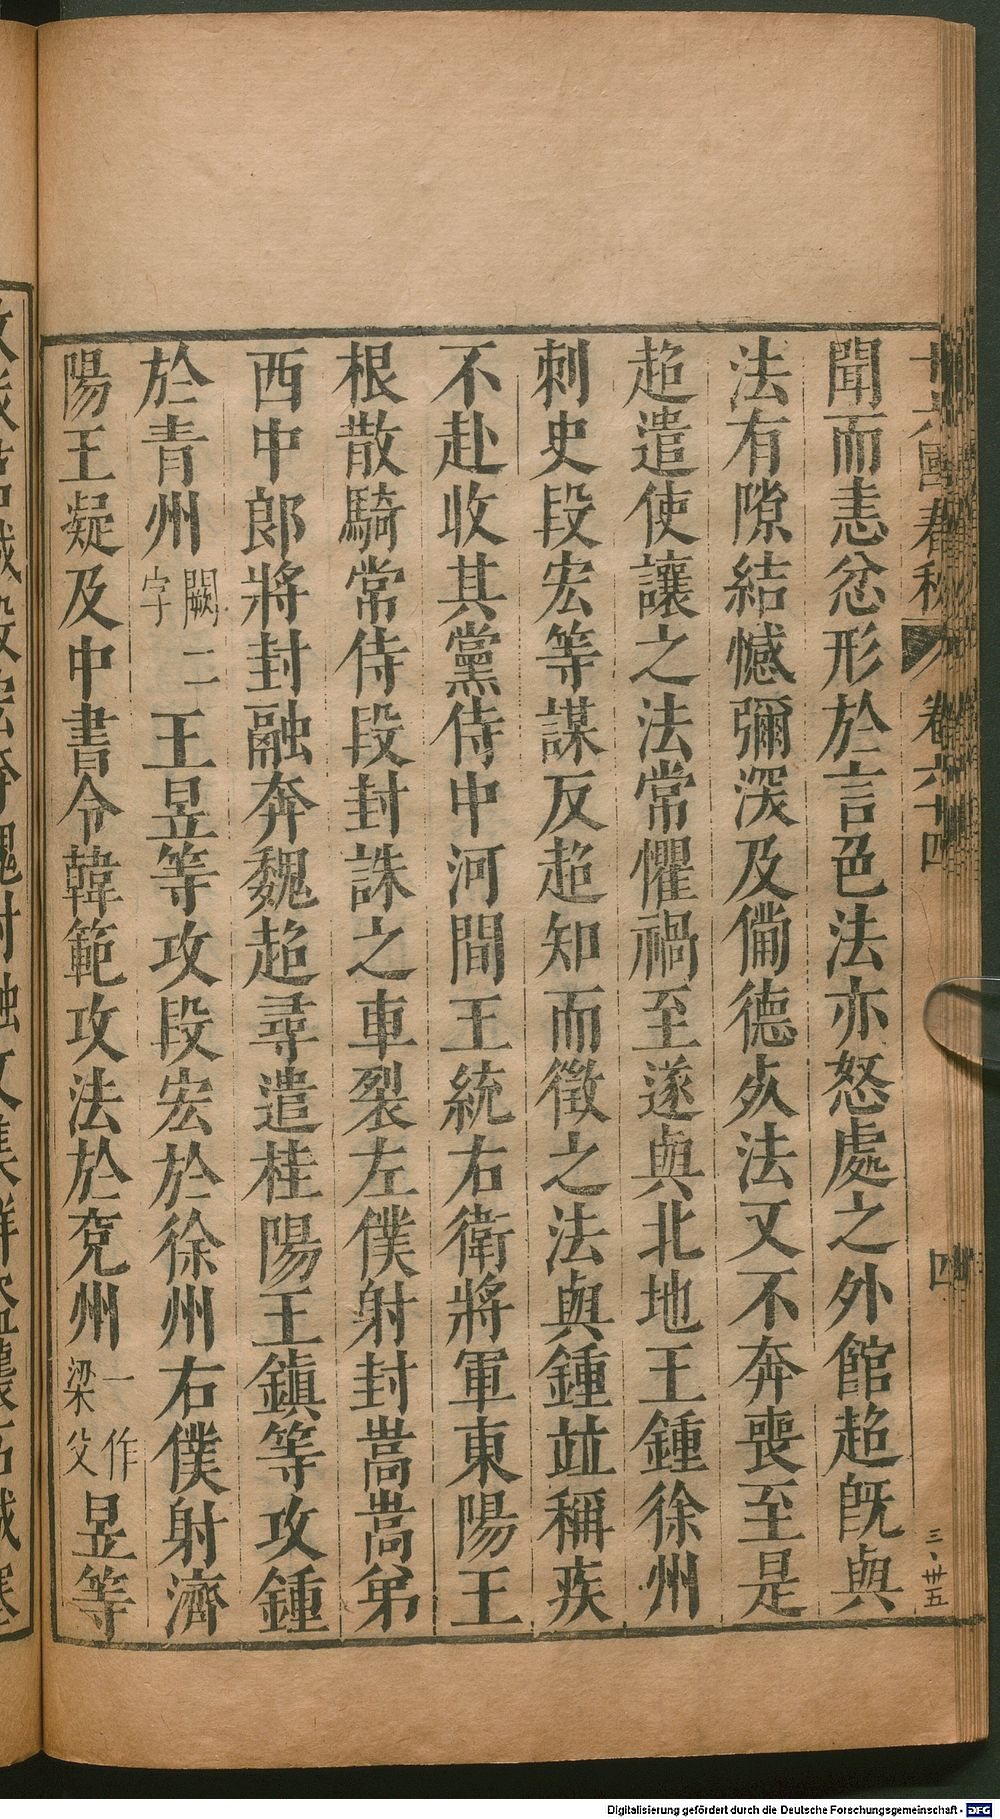 十六國春秋 卷六十四 四
三·卅五
聞而恚忿形於言色法亦怒處之外館超旣與
法有隙結憾彌深及備德歿法又不奔喪至是
超遣使讓之法常懼禍至遂與北地王鍾徐州
刺史段宏等謀反超知而徵之法與鍾並稱疾
不赴收其黨侍中河間王統右衛將軍東陽王
根散騎常侍段封誅之車裂左僕射封嵩嵩弟
西中郎將封融奔魏超尋遣桂陽王鎮等攻鍾
於青州闕二字王昱等攻段宏於徐州右僕射濟
陽王凝及中書令韓範攻法於兗州一作梁父昱等
Digitalisierung gefördert durch die Deutsche Forschungsgemeinschaft - DFG